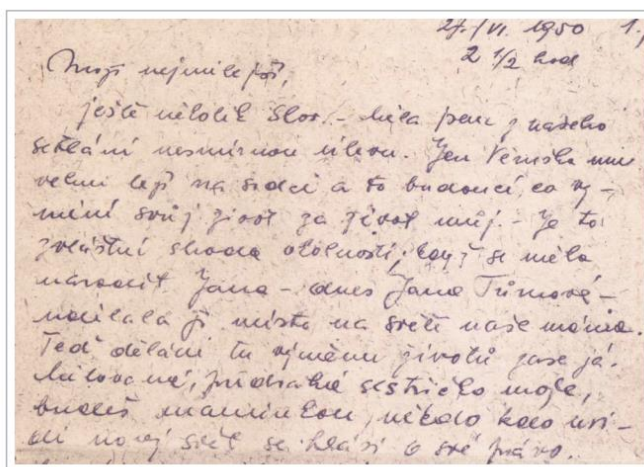 27./VI. 1950 1.,
2 1/2 hod
Moji nejmilejší,
ještě několik slov. – Měla jsem z našeho
setkání nesmírnou úlevu. Jen Věruška mi
velmi leží na srdci a to budoucí, co vy-
mění svůj život za život můj. – Je to
zvláštní shoda okolností, když se měla
narodit Jana – dnes Jana Tůmová –
udělala jí místo na světě naše máma.
Teď dělám tu výměnu životů zase já.
Milovaná, předrahá sestřičko moje,
budeš maminkou, někdo kdo uvi-
dí nový svět se hlásí o své právo.